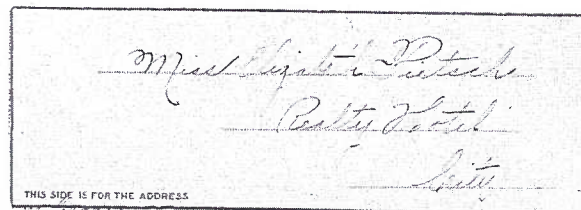 Miss Elizabeth Pietsch
Realty Hotel
City
THIS SIDE IS FOR THE ADDRESS